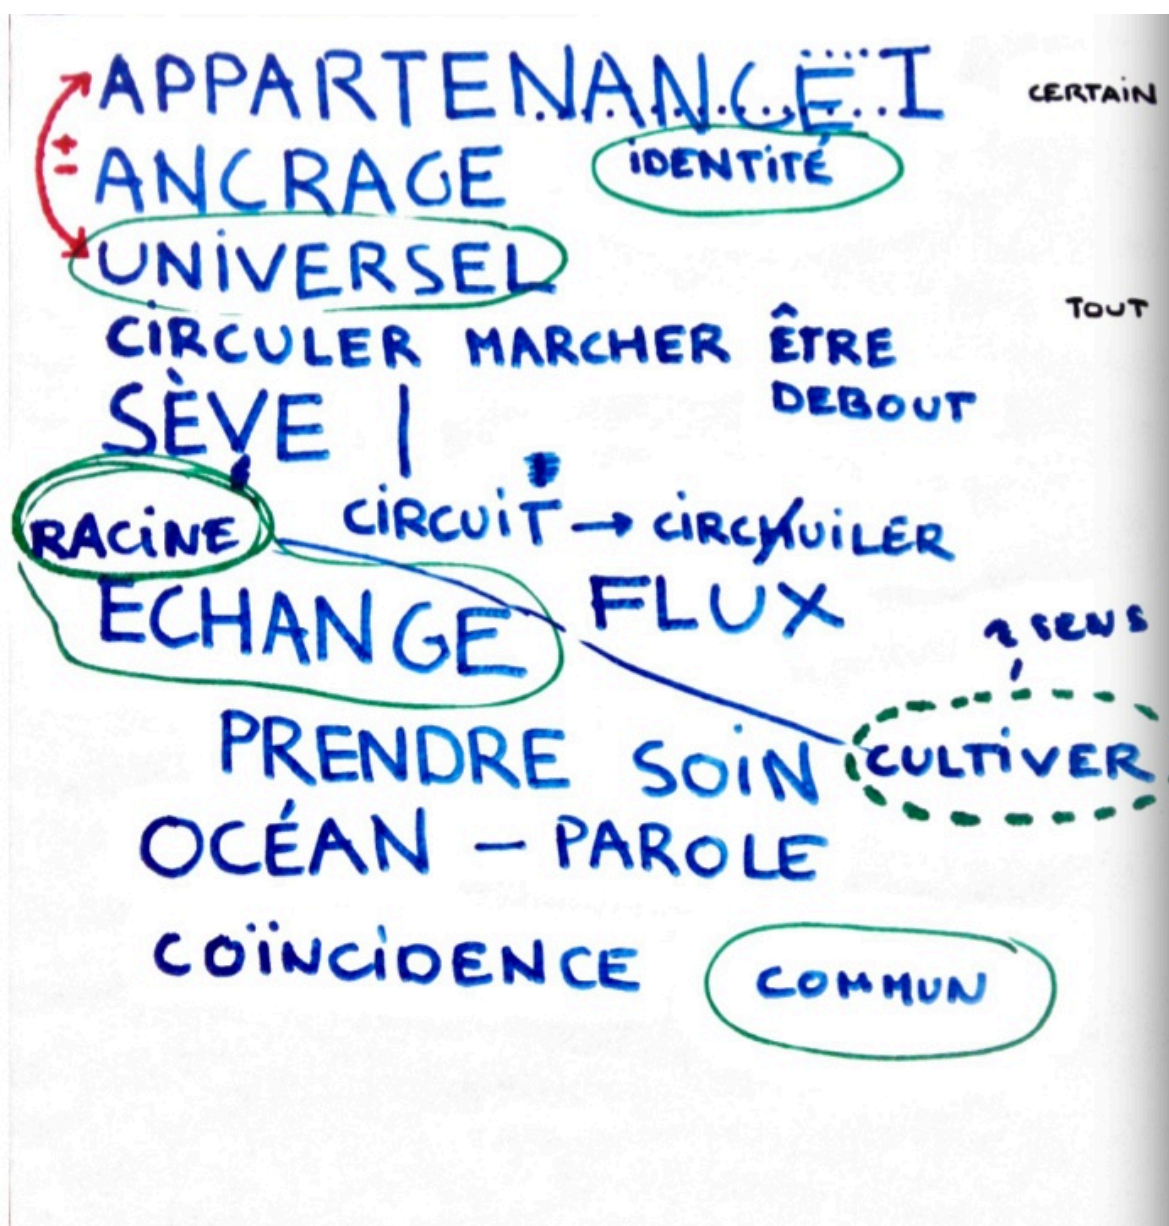 APPARTENANCE I
CERTAIN
ANCRAGE
IDENTITÉ
UNIVERSEL
TOUT
CIRCULER MARCHER ÊTRE
DEBOUT
SÈVE |
RACINE
CIRCUIT → CIRCUILER
ECHANGE
FLUX
2 SENS
PRENDRE SOIN
CULTIVER
OCÉAN – PAROLE
COÏNCIDENCE
COMMUN